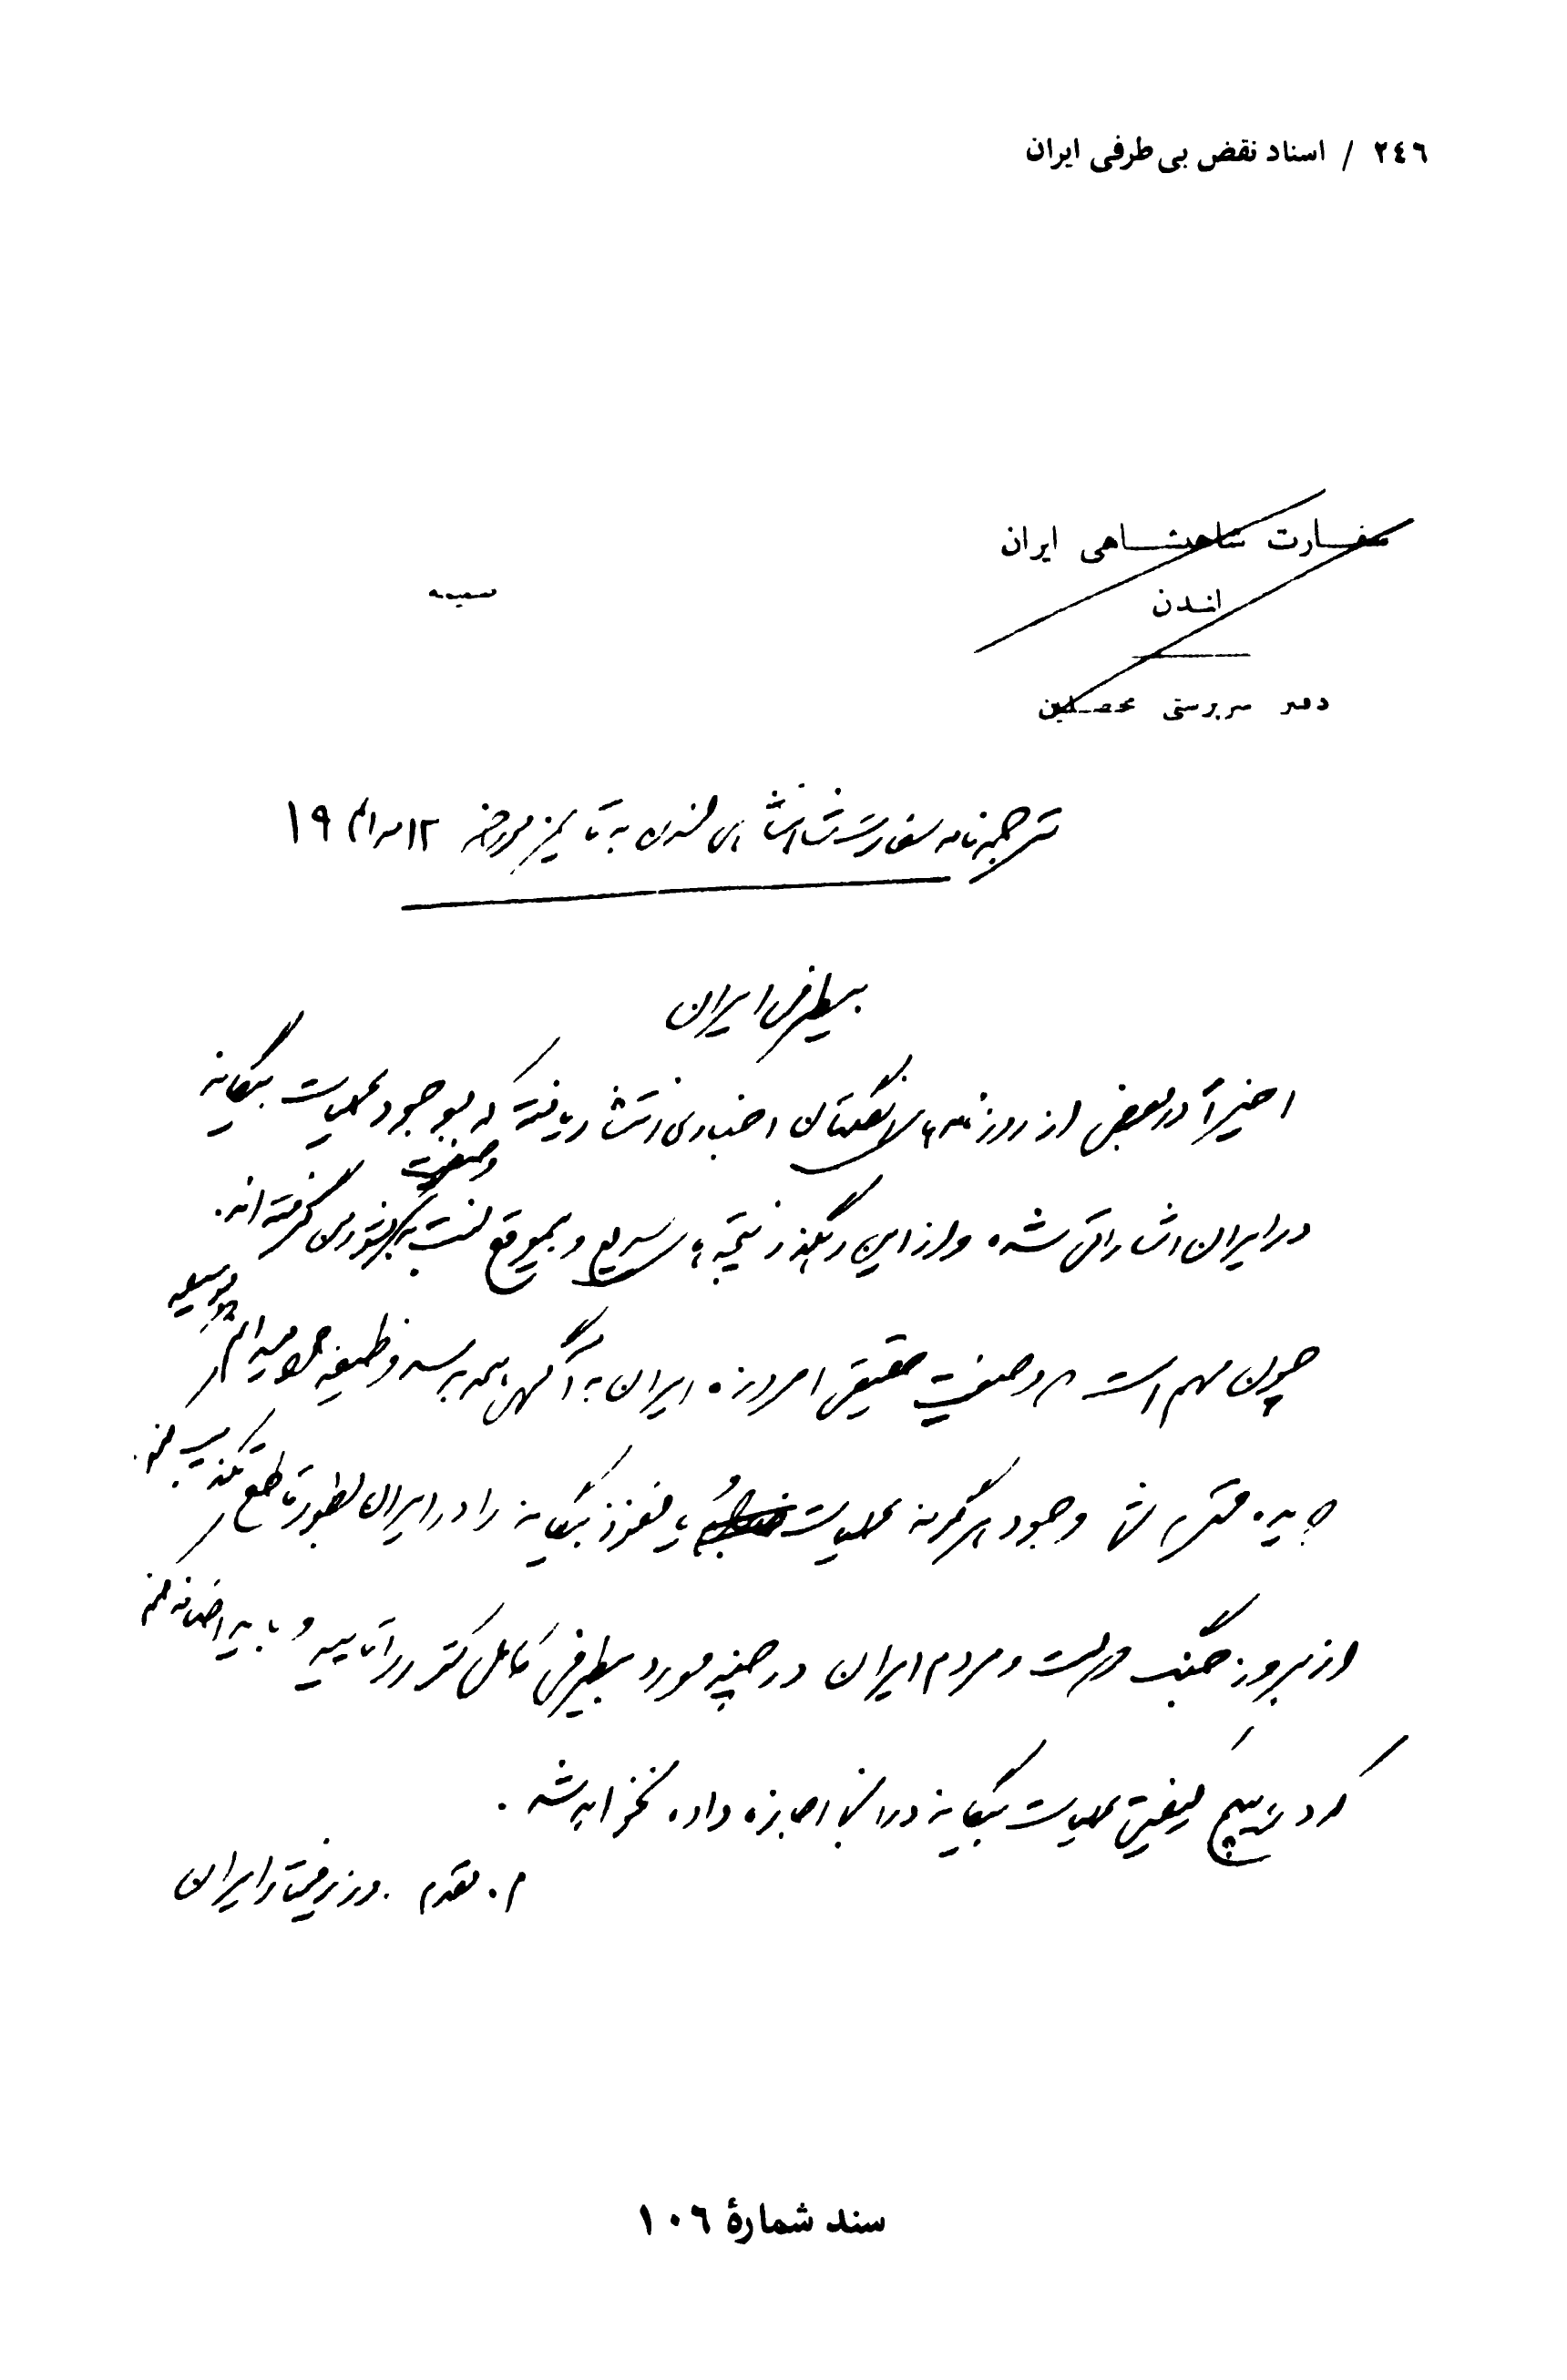 ٢٤٦ / اسناد نقض بی طرفی ایران
سفارت شاهنشاهی ایران
لندن
ضمیمه
دفتر سرپرستی محصلین
ترجمه نامه سفارت شاهنشاهی لندن به تایمز مورخه ١٢ مرداد ١٩
بیطرفی ایران
اخیراً در بعضی از روزنامه های انگلستان اخباری انتشار یافته که بوجود عملیات بیگانه
در ایران اشاراتی شده و از این رهگذر نتیجه های سریع و بموقع نسبت به وضعیت کشور من گرفته اند.
چون مهم است که وضعیت حقیقی امروزه ایران به آگهی همه برسد وظیفه خود میدانم که بوسیله
جریده محترم شما وجود هرگونه عملیات یا نفوذ بیگانه را در ایران بطور قاطع تکذیب کنم.
از بروز جنگ دولت و مردم ایران در صفحه مورد بیطرفی کامل کشور را تایید و باید اضافه کنم
که بهیچ کیفیتی عملیات بیگانه در آنجا اجازه داده نخواهد شد.
م. مقدم . وزیر مختار ایران
سند شمارهٔ ١٠٦